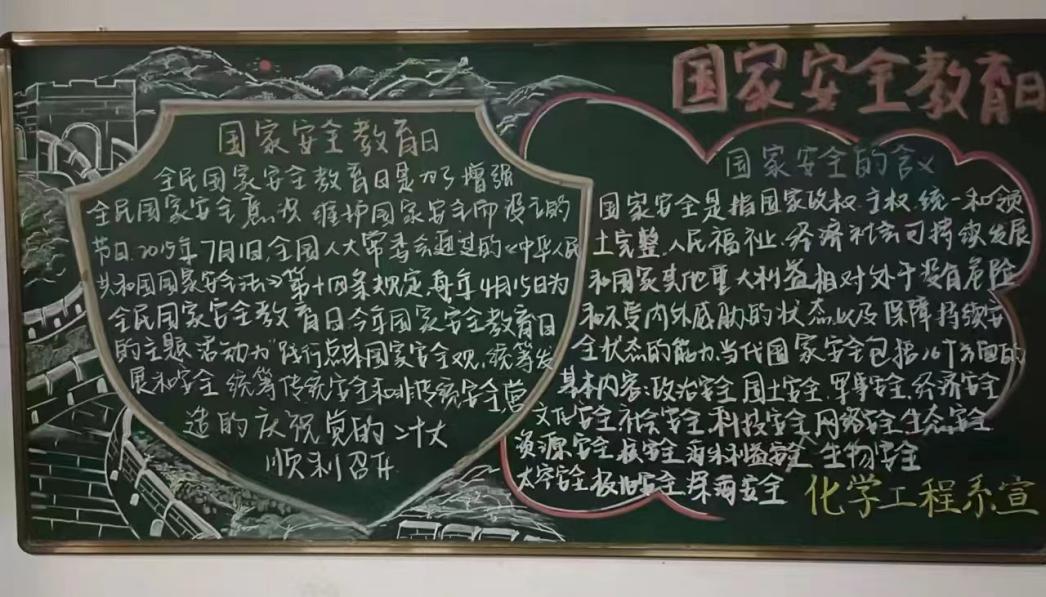 国家安全教育日
国家安全教育日
全民国家安全教育日是为了增强
全民国家安全意识 维护国家安全而设立的
节日.2015年7月1日,全国人大常委会通过的《中华人民
共和国国家安全法》第十四条规定,每年4月15日为
全民国家安全教育日.今年国家安全教育日
的主题活动为"践行总体国家安全观,统筹发
展和安全 统筹传统安全和非传统安全营
造的庆祝党的二十大
顺利召开
国家安全的含义
国家安全是指国家政权.主权.统一和领
土完整.人民福祉.经济社会可持续发展
和国家其他重大利益相对处于没有危险
和不受内外威胁的状态,以及保障持续安
全状态的能力,当代国家安全包括16个方面的
基本内容:政治安全.国土安全.军事安全.经济安全
文化安全.社会安全.科技安全.网络安全.生态安全
资源安全.核安全.海外利益安全 生物安全
太空安全.极地安全.深海安全
化学工程系宣